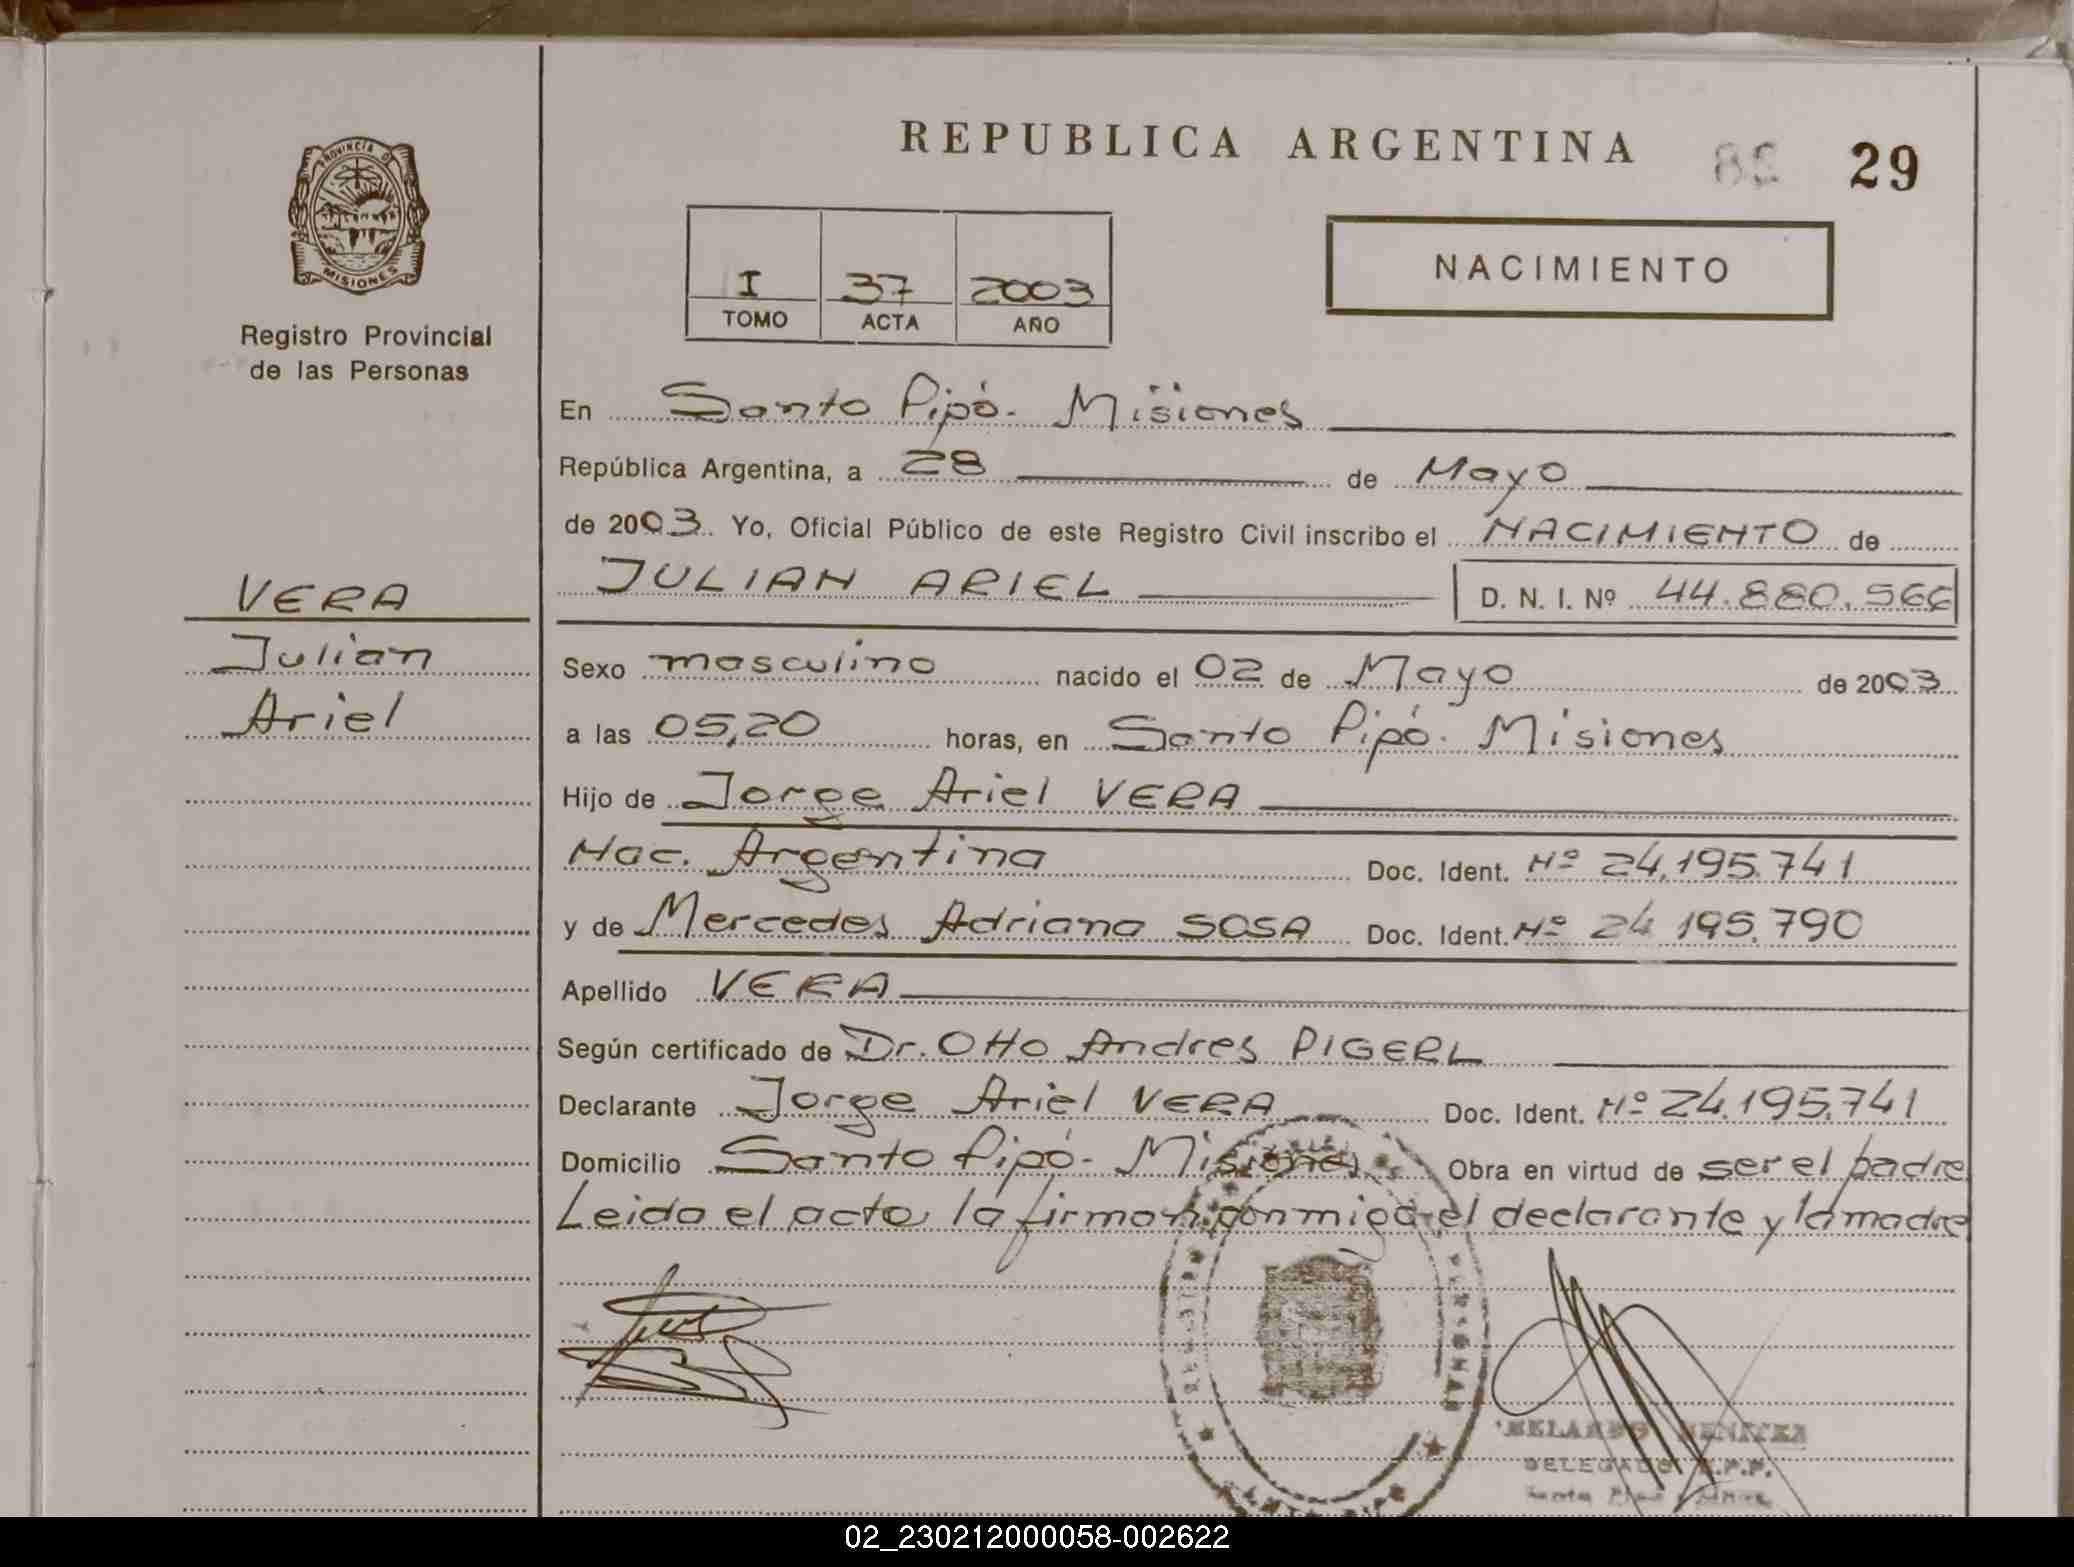 REPUBLICA ARGENTINA
29
PROVINCIA DE
MISIONES
Registro Provincial
de las Personas
I 37 2003
TOMO ACTA AÑO
NACIMIENTO
En Santo Pipó - Misiones
República Argentina, a 28 de Mayo
de 2003. Yo, Oficial Público de este Registro Civil inscribo el NACIMIENTO de
JULIAN ARIEL D. N. I. Nº 44.880.566
VERA
Julian
Ariel
Sexo masculino nacido el 02 de Mayo de 2003
a las 05,20 horas, en Santo Pipó - Misiones
Hijo de Jorge Ariel VERA
Nac. Argentina Doc. Ident. Nº 24.195.741
y de Mercedes Adriana SOSA Doc. Ident. Nº 24 195.790
Apellido VERA
Según certificado de Dr. Otto Andres PIGERL
Declarante Jorge Ariel VERA Doc. Ident. Nº 24.195.741
Domicilio Santo Pipó - Misiones Obra en virtud de ser el padre
Leida el acta, la firman conmigo el declarante y la madre
BENITEZ
DELEGADO
02_230212000058-002622